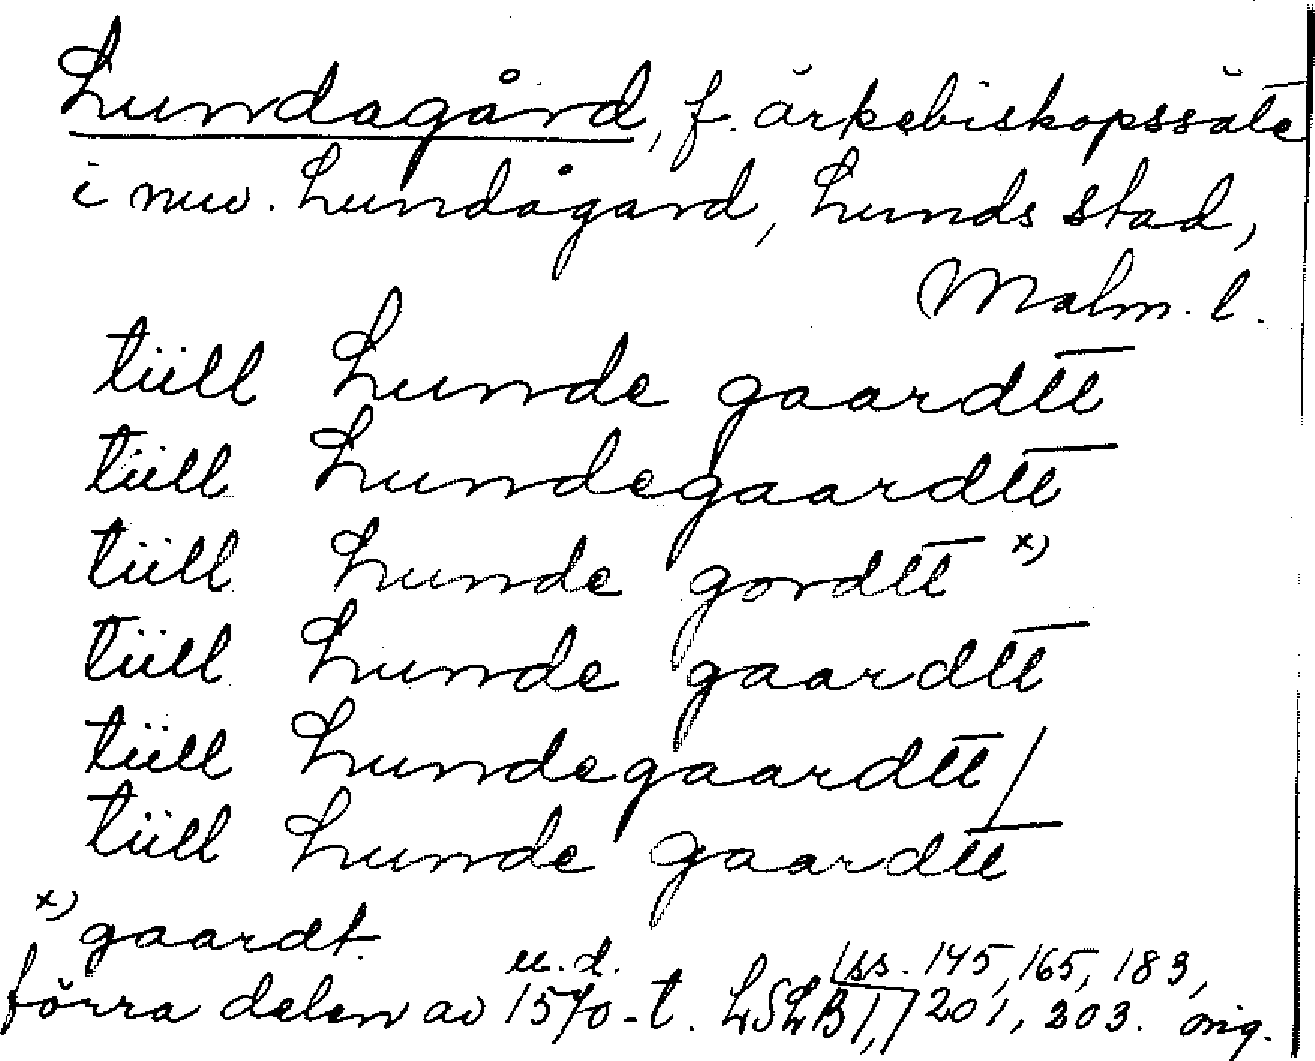 Lundagård, f. ärkebiskopssäte
i nuv. Lundagård, Lunds stad,
Malm. l.
tiill Lunde gaardtt
tiill Lundegaardtt
tiill Lunde gordtt x)
tiill Lunde gaardtt
tiill Lundegaardtt/
tiill Lunde gaardtt
x) gaardt.
u.d. ss. 145, 165, 183,
förra delen av 1570-t. LSLB I, 201, 203. orig.